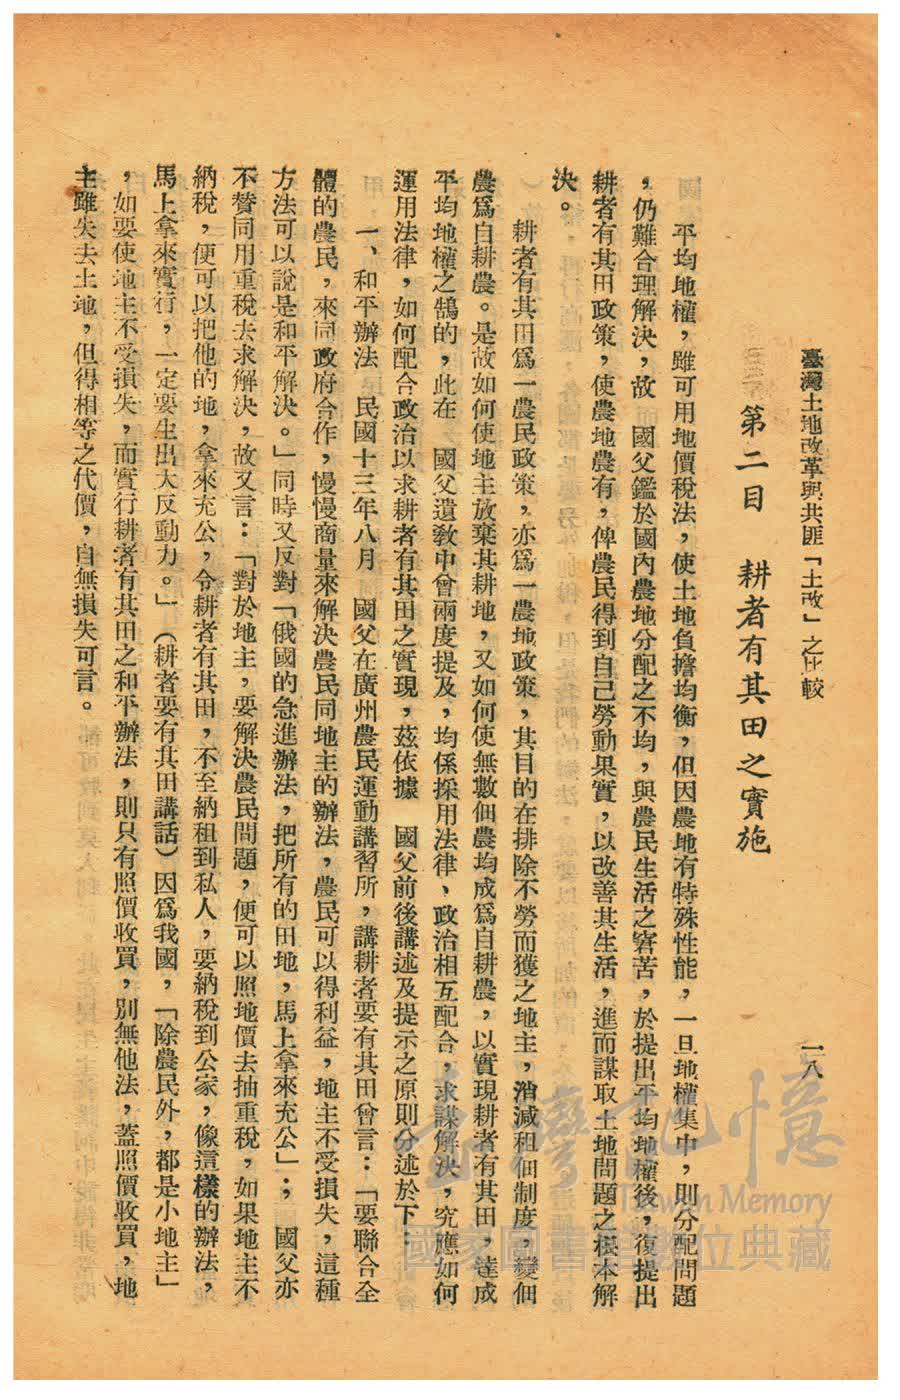 臺灣土地改革與共匪「土改」之比較
一八
第二目　耕者有其田之實施
平均地權，雖可用地價稅法，使土地負擔均衡，但因農地有特殊性能，一旦地權集中，則分配問題
，仍難合理解決，故　國父鑑於國內農地分配之不均，與農民生活之窘苦，於提出平均地權後，復提出
耕者有其田政策，使農地農有，俾農民得到自己勞動果實，以改善其生活，進而謀取土地問題之根本解
決。
耕者有其田爲一農民政策，亦爲一農地政策，其目的在排除不勞而獲之地主，消滅租佃制度，變佃
農爲自耕農。是故如何使地主放棄其耕地，又如何使無數佃農均成爲自耕農，以實現耕者有其田，達成
平均地權之鵠的，此在　國父遺敎中曾兩度提及，均係採用法律、政治相互配合，求謀解決，究應如何
運用法律，如何配合政治以求耕者有其田之實現，茲依據　國父前後講述及提示之原則分述於下：
一、和平辦法　民國十三年八月　國父在廣州農民運動講習所，講耕者要有其田曾言：「要聯合全
體的農民，來同政府合作，慢慢商量來解決農民同地主的辦法，農民可以得利益，地主不受損失，這種
方法可以說是和平解決。」同時又反對「俄國的急進辦法，把所有的田地，馬上拿來充公」；　國父亦
不贊同用重稅去求解決，故又言：「對於地主，要解決農民問題，便可以照地價去抽重稅，如果地主不
納稅，便可以把他的地，拿來充公，令耕者有其田，不至納租到私人，要納稅到公家，像這樣的辦法，
馬上拿來實行，一定要生出大反動力。」（耕者要有其田講話）因爲我國，「除農民外，都是小地主」
，如要使地主不受損失，而實行耕者有其田之和平辦法，則只有照價收買，別無他法，蓋照價收買，地
主雖失去土地，但得相等之代價，自無損失可言。
臺灣記憶
Taiwan Memory
國家圖書館數位典藏